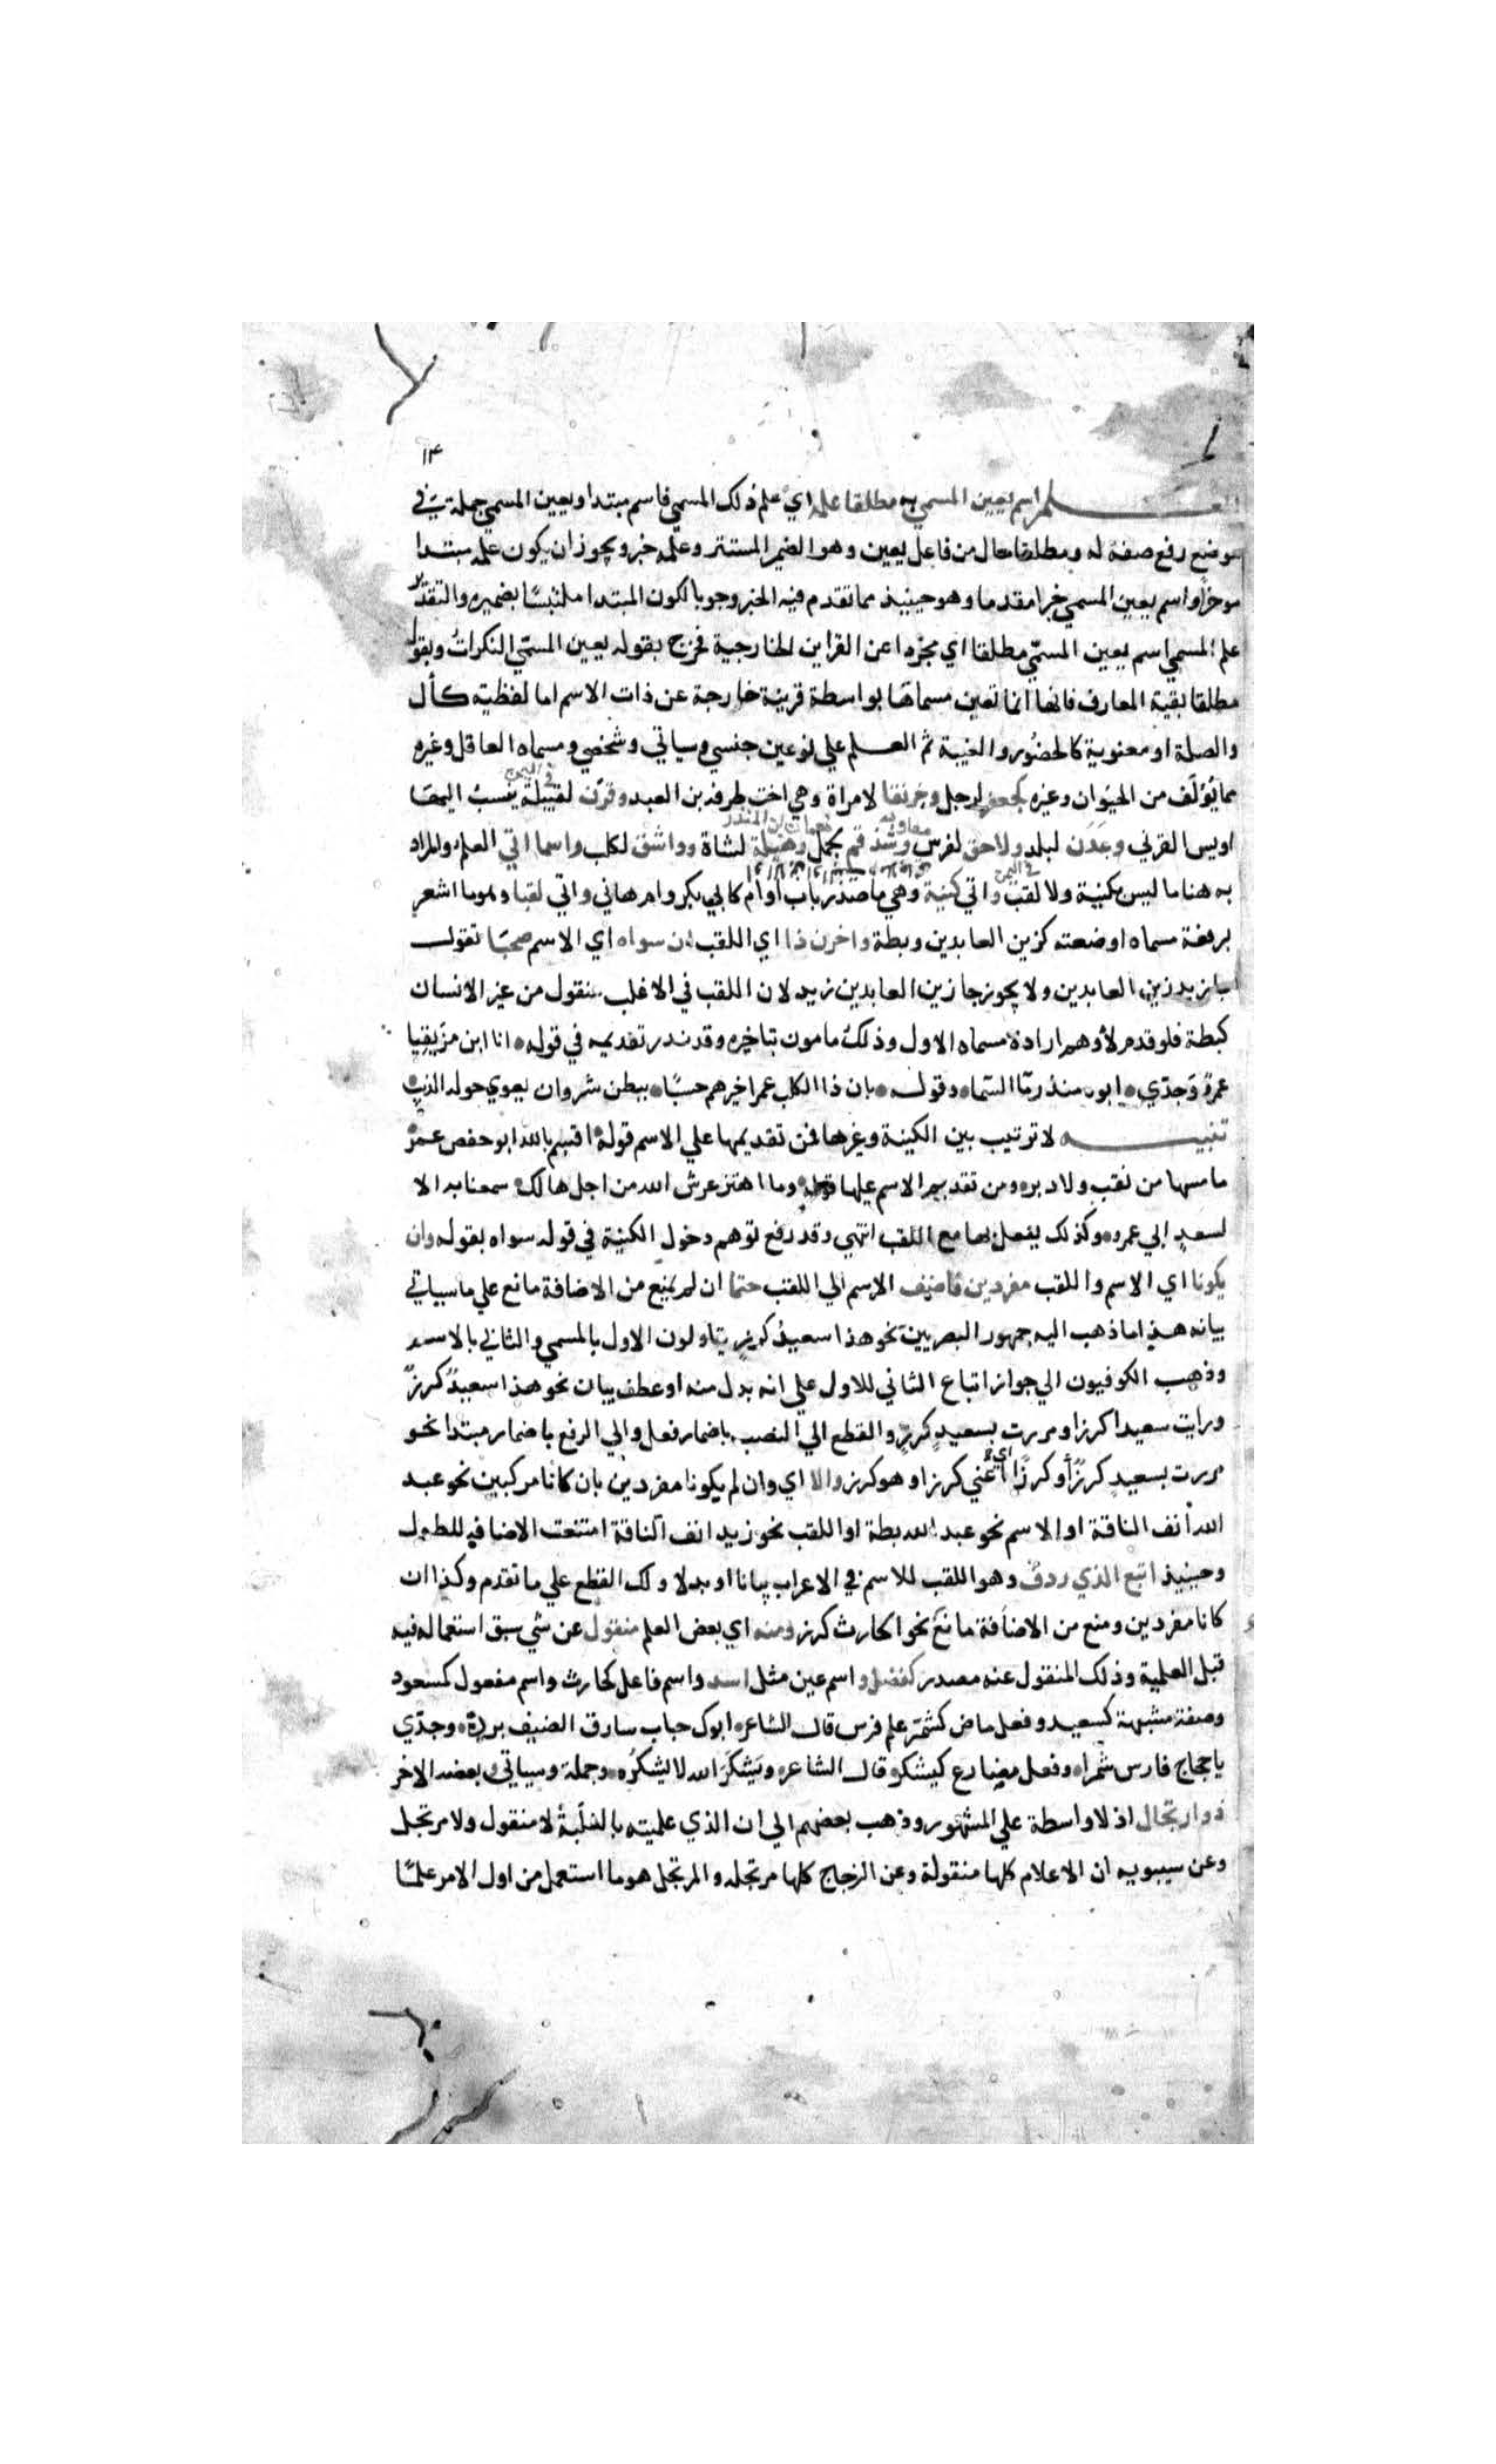 ١٣
العلم اسم يعين المسمي به مطلقا علمه اي علم ذلك المسمي فاسم مبتدا ويعين المسمي جملة في
موضع رفع صفة له ومطلقا حال من فاعل يعين وهو الضمير المستتر وعلمه خبر ويجوز ان يكون علمه مبتدا
موخرا واسم يعين المسمي خبرا مقدما وهو حينيذ مما تقدم فيه الخبر وجوبا لكون المبتدا ملتبسًا بضميره والتقدير
علم المسمي اسم يعين المسمّي مطلقا اي مجردا عن القراين الخارجية فخرج بقوله يعين المسمّي النكراتُ وبقوله
مطلقا بقية المعارف فانها انما تعين مسماها بواسطة قرينة خارجة عن ذات الاسم اما لفظية كأل
والصلة او معنوية كالحضُور والغيبة ثم العلم علي نوعين جنسي وسياتي وشخصي ومسماه العاقل وغيره
مما يُؤلَف من الحيوان وغيره كجعفر لرجل وخرنقا لامراة وهي اخت طرفة بن العبد وقرن لقبيلة ينسبُ اليها
في اليمن
اويس القرني وعَدَن لبلد ولاحق لفرس وشذقم لجمل وهيلة لشاة وواشق لكلب واسما اتي العلم والمراد
معاوية نعمان بن المنذر
في اليمن
به هنا ما ليس بكنية ولا لقب واتي كنية وهي ما صدر باب او ام كابي بكر وام هاني واتي لقبا وهو ما اشعر
برفعة مسماه او ضعته كزين العابدين وبطة واخرن ذا اي اللقب ان سواه اي الاسم صحبَا تقول
جا زيد زين العابدين ولا يجوز جا زين العابدين زيد لان اللقب في الاغلب منقول من غير الانسان
كبطة فلو قدم لأوهم ارادة مسماه الاول وذلك مامون بتاخيره وقد ندر تقديمه في قوله انا ابن مزيقيا
عمرو وَجدّي ابوه منذر مّا السّماء وقوله بان ذا الكلب عمرا خيرهم حسبًا ببطن شروان يعوي حوله الذيب
تنبيه لا ترتيب بين الكنية وغيرها فمن تقديمها علي الاسم قوله اقسم بالله ابو حفص عمر
ما مسها من نقب ولا دبره ومن تقديم الاسم عليها قوله وما اهتز عرش الله من اجل هالك سمعنا به الا
لسعدٍ ابي عمرو وكذلك يفعل بها مع اللقب انتهي وقد رفع توهم دخول الكنية في قوله سواه بقوله وان
يكونا اي الاسم واللقب مفردين فاضف الاسم الي اللقب حتما ان لم يمنع من الاضافة مانع علي ما سياتي
بيانه هذا ما ذهب اليه جمهور البصريين نحو هذا سعيدُ كرزٍ يتاولون الاول بالمسمي والثاني بالاسم
وذهب الكوفيون الي جواز اتباع الثاني للاول علي انه بدل منه او عطف بيان نحو هذا سعيدٌ كرزٌ
ورايت سعيدا كرزا ومررت بسعيدٍ كرزٍ والقطع الي النصب باضمار فعل والي الرفع باضمار مبتدا نحو
مررت بسعيدٍ كرزٌ أو كرزًا اي أعني كرزا او هو كرز والا اي وان لم يكونا مفردين بان كانا مركبين نحو عبد
الله أنف الناقة او الاسم نحو عبد الله بطة او اللقب نحو زيد انف الناقة امتنعت الاضافة للطول
وحينيذ اتبع الذي ردف وهو اللقب للاسم في الاعراب بيانا او بدلا ولك القطع علي ما تقدم وكذا ان
كانا مفردين ومنع من الاضافة مانع نحو الحارث كرز ومنه اي بعض العلم منقول عن شي سبق استعماله فيه
قبل العلمية وذلك المنقول عنه مصدر كفضل واسم عين مثل اسد واسم فاعل كحارث واسم مفعول كمسعود
وصفة مشبهة كسعيد وفعل ماض كشمّر علم فرس قال الشاعر ابوك حباب سارق الضيف بردَه وجدّي
يا حجاج فارس شمرا وفعل مضارع كيشكر قال الشاعر ويَشكُرَ الله لا يشكُره وجملة وسياتي وبعضه الاخر
ذو ارتجال اذ لا واسطة علي المشهور وذهب بعضهم الي ان الذي علميته بالغلَبة لا منقول ولا مرتجل
وعن سيبويه ان الاعلام كلها منقولة وعن الزجاج كلها مرتجله والمرتجل هو ما استعمل من اول الامر علمًا